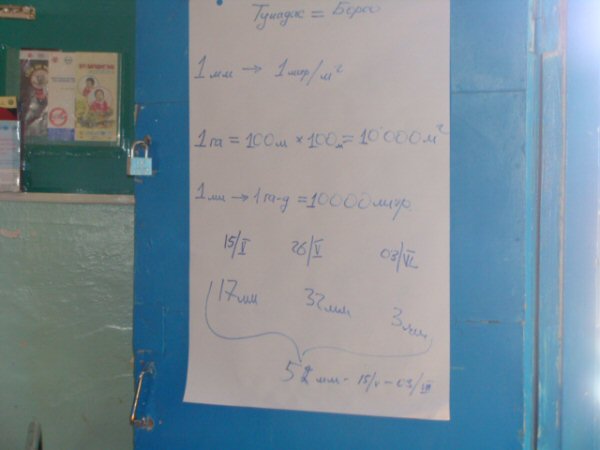 Тунадас = Бороо
1 мм → 1 литр/м²
1 га = 100 м × 100 м = 10'000 м²
1 мм → 1 га-д = 10000 литр
15/V 26/V 03/VI
17 мм 32 мм 3 мм
52 мм - 15/V - 03/VI